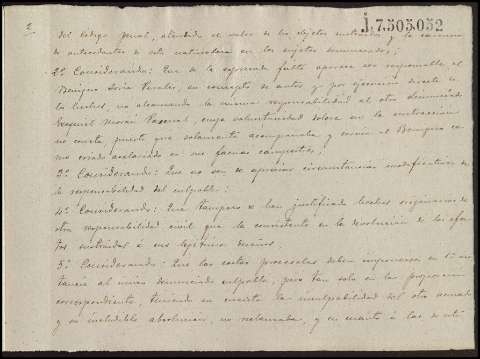 2
J.7.505.052
del Código penal, atendido el valor de los objetos y la carencia
de antecedentes de esta naturaleza en los sujetos denunciados;
2º Considerando: Que de la expresada falta aparece ser responsable el
Benigno Soria Perales, en concepto de autor y por ejecución directa de
los hechos, no alcanzando la misma responsabilidad al otro denunciado
Ezequiel Morán Pascual, cuya voluntariedad dolosa en la sustracción
no consta, puesto que solamente acompañaba y servía al Benigno co-
mo criado asalariado en sus faenas campestres;
3º Considerando: Que no son de apreciar circunstancias modificativas de
la responsabilidad del culpable:
4º Considerando: Que tampoco se han justificado hechos originarios de
otra responsabilidad civil que la consistente en la devolución de los efec-
tos sustraídos á sus legítimos dueños.
5º Considerando: Que las costas procesales deben imponerse en 1ª ins-
tancia al único denunciado culpable, pero tan solo en la proporción
correspondiente, teniendo en cuenta la inculpabilidad del otro acusado
y su ineludible absolución, no reclamada, y en cuanto á las de esta